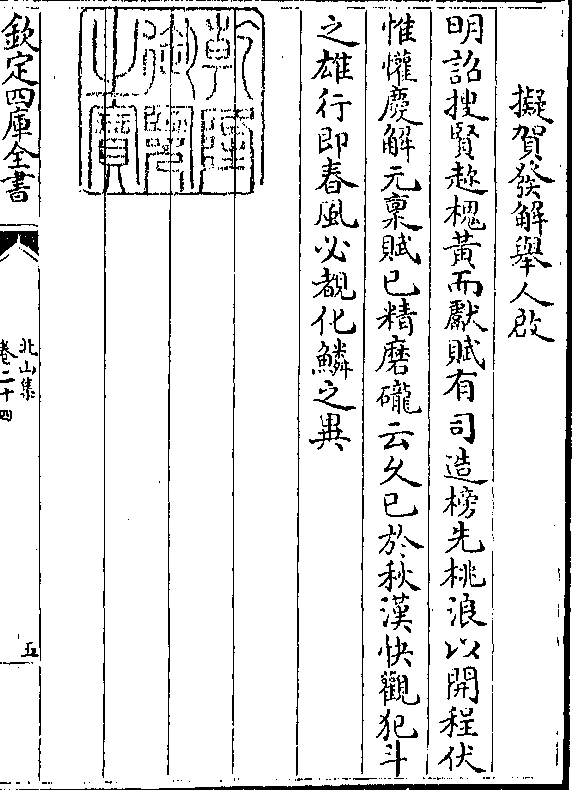 擬賀發解舉人啟
明詔搜賢趂槐黃而獻賦有司造榜先桃浪以開程伏
惟懽慶解元稟賦已精磨礲云久已於秋漢快觀犯斗
之雄行即春風必覩化鱗之異
乾隆御覽之寶
欽定四庫全書
北山集
卷二十四
五